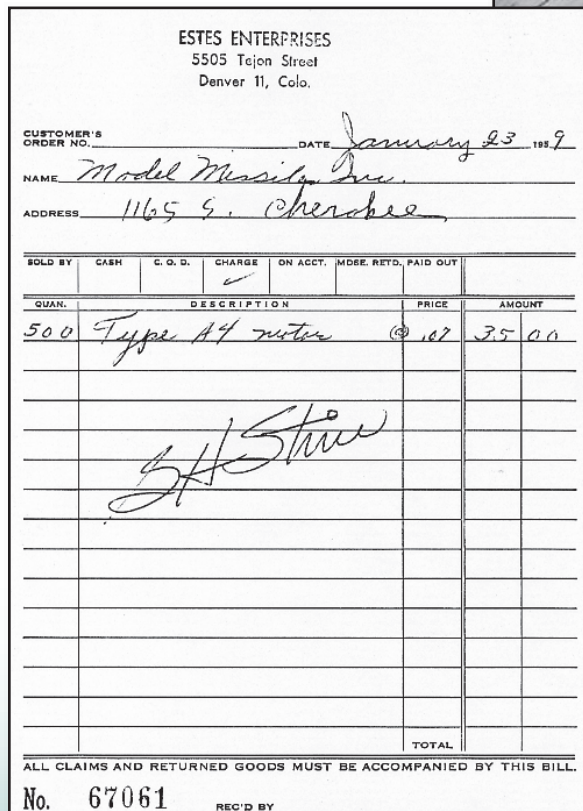 ESTES ENTERPRISES
5505 Tejon Street
Denver 11, Colo.
CUSTOMER'S
ORDER NO. DATE January 23 1959
NAME Model Missiles, Inc.
ADDRESS 1165 S. Cherokee
SOLD BY CASH C. O. D. CHARGE ON ACCT. MDSE. RETD. PAID OUT
✓
QUAN. DESCRIPTION PRICE AMOUNT
500 Type A4 motor @ .07 35 00
GH Stine
TOTAL
ALL CLAIMS AND RETURNED GOODS MUST BE ACCOMPANIED BY THIS BILL.
No. 67061 REC'D BY